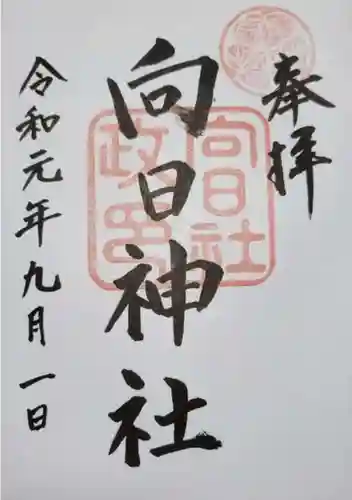 奉拝
向日神社
令和元年九月一日
向日社
政印